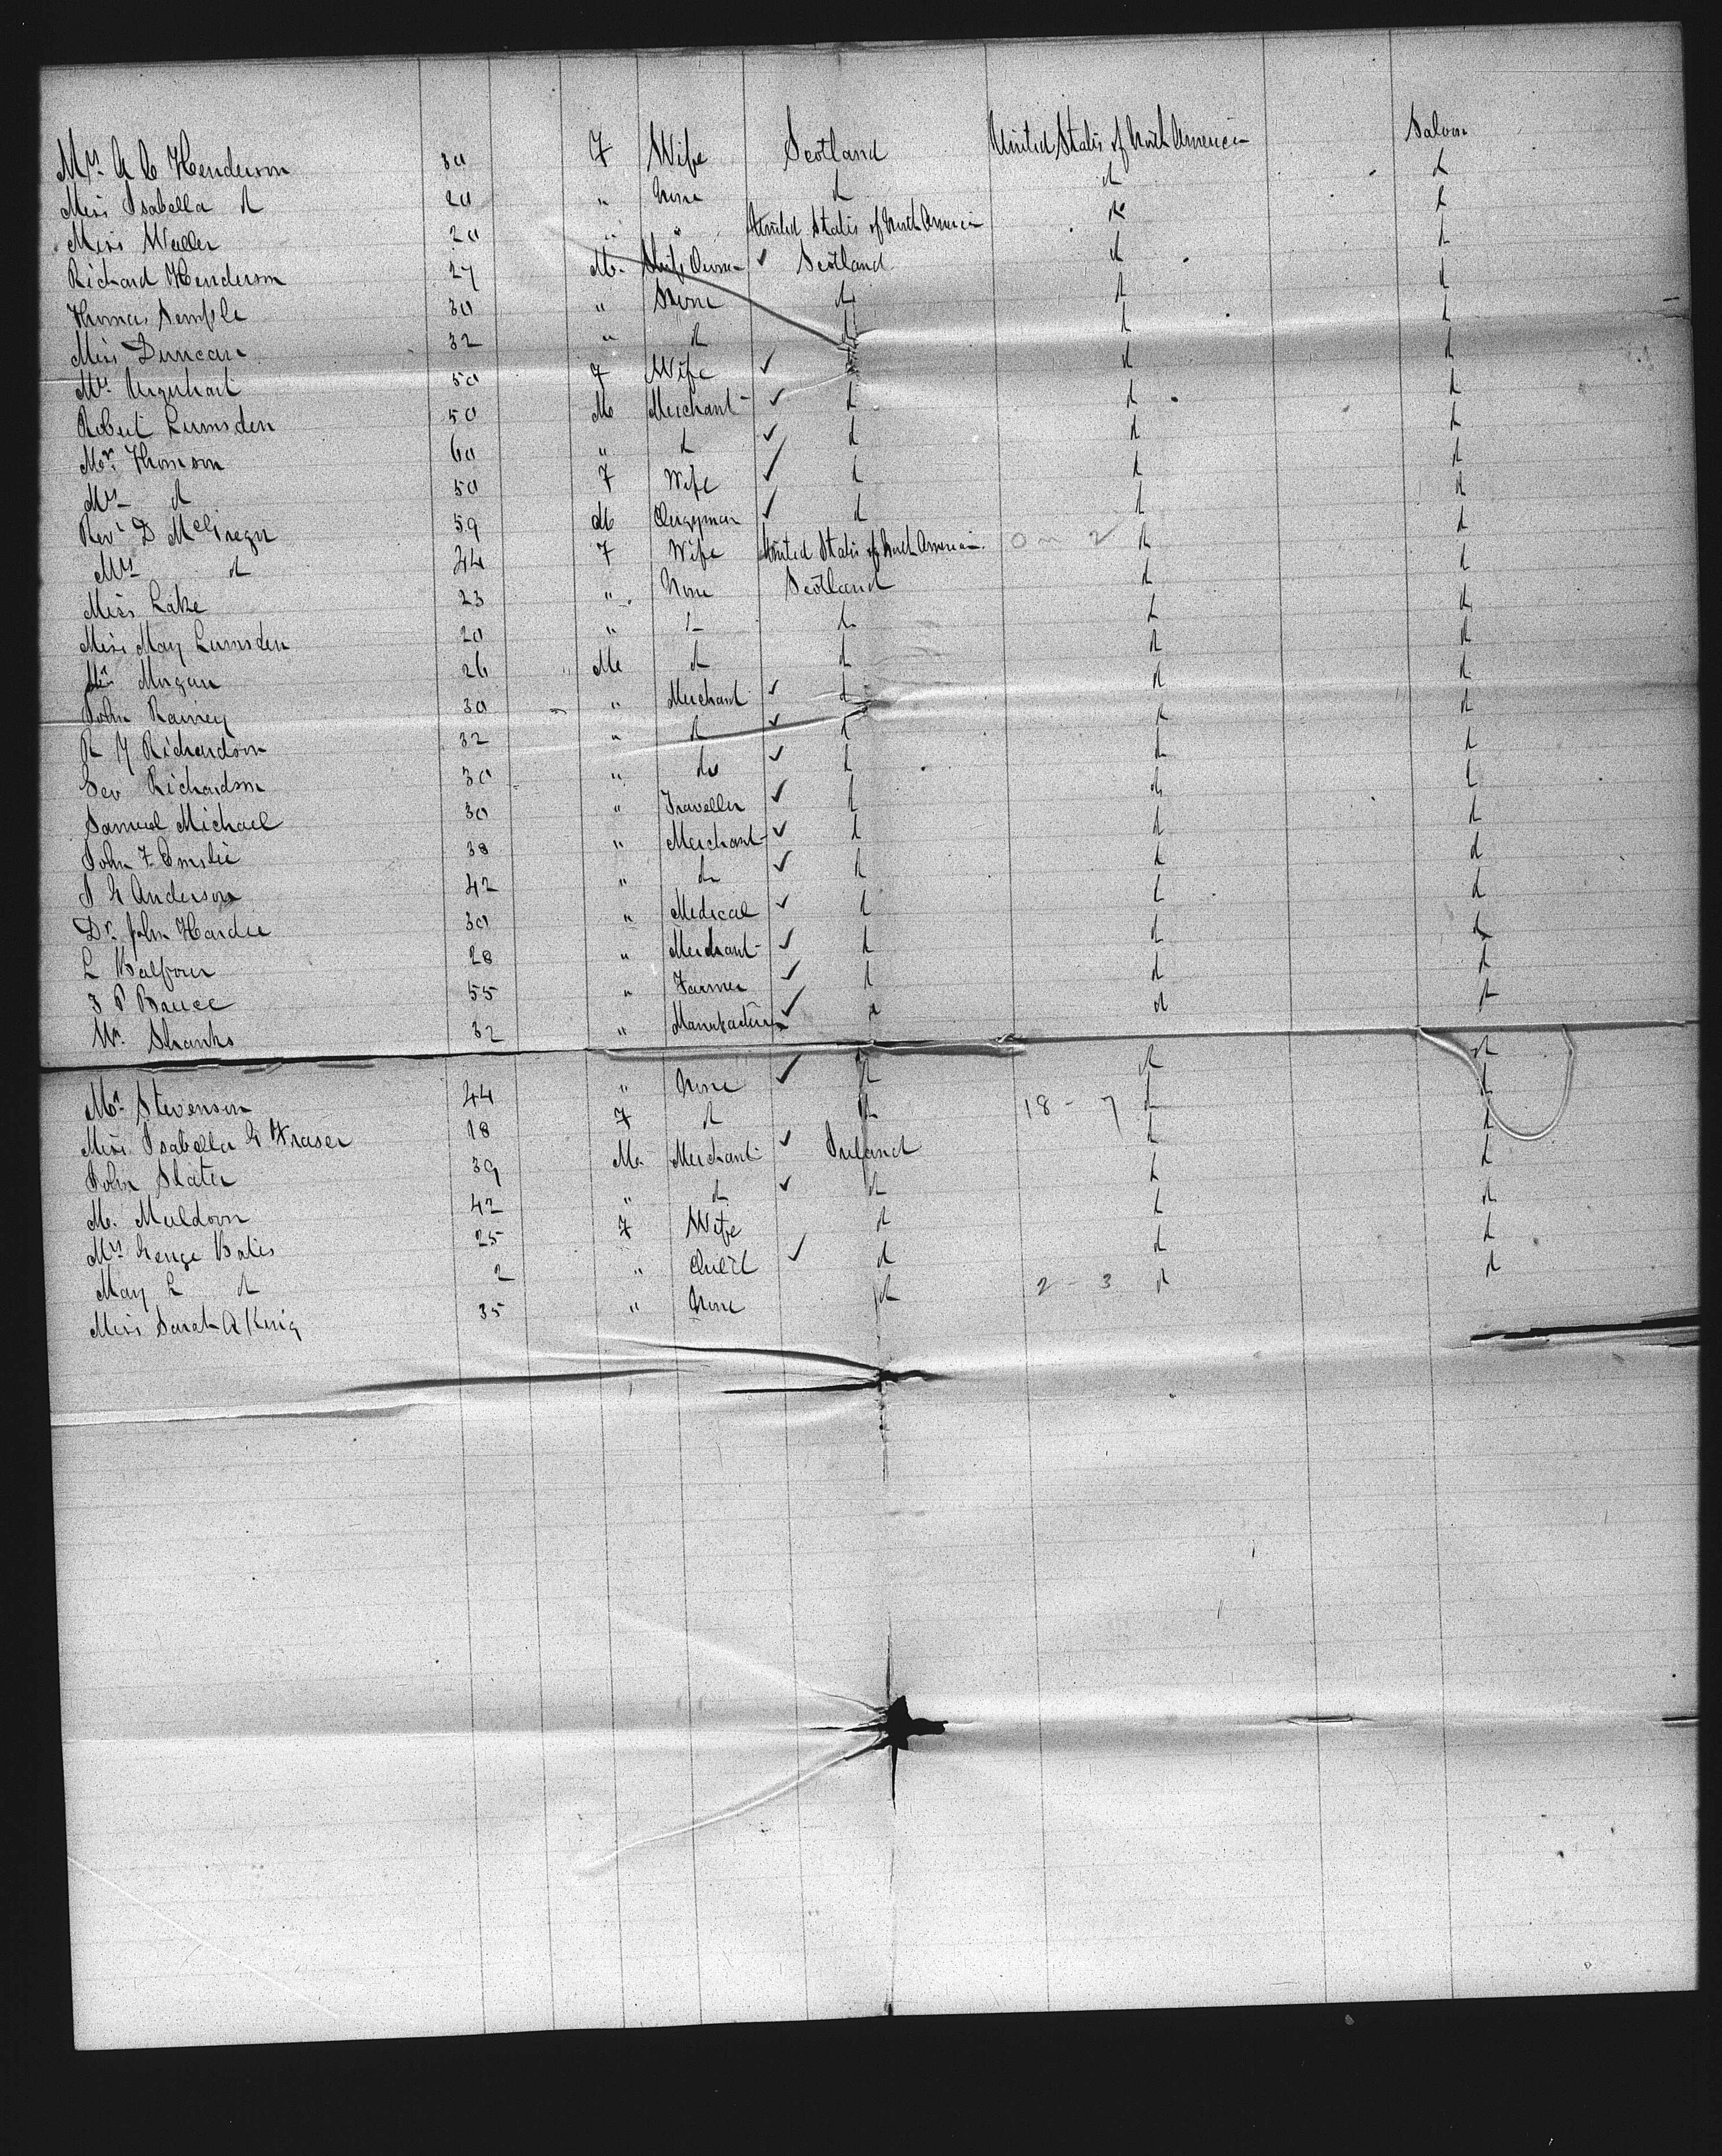 Mrs A C Henderson 30 F Wife Scotland United States of North America Saloon
Miss Isabella do 20 " None do do do
Miss Waller 20 " " United States of North America do do
Richard Henderson 27 M. Ship Owner ✓ Scotland do do
Thomas Semple 30 " None do do do
Miss Duncan 32 " do do do do
Mrs Urquhart 50 F Wife ✓ do do
Robert Lumsden 50 M Merchant ✓ do do do
Mr Thomson 60 " do ✓ do do do
Mrs do 50 F Wife ✓ do do do
Revd D McGregor 59 M Clergyman ✓ do do do
Mrs do 44 F Wife United States of North America do do
Miss Lake 23 " None Scotland do do
Miss May Lumsden 20 " do do do do
Mr Morgan 26 M do do do do
John Rainey 30 " Merchant ✓ do do do
R Y Richardson 32 " do ✓ do do do
Geo Richardson 30 " do ✓ do do do
Samuel Michael 30 " Traveller ✓ do do do
John F Emslie 38 " Merchant ✓ do do do
J G Anderson 42 " do ✓ do do do
Dr John Hardie 30 " Medical ✓ do do do
L Balfour 28 " Merchant ✓ do do do
J P Bruce 55 " Farmer ✓ do do do
Wm Shanks 32 " Manufacturer ✓ do do do
Mr Stevenson 44 " None ✓ do do do
Miss Isabella G Fraser 18 F do do 18 - 7 do do
John Slater 39 M. Merchant ✓ Ireland do do
M. Muldoon 42 " do ✓ do do do
Mrs George Bates 25 F Wife do do do
May L do 2 " Child ✓ do do do
Miss Sarah A King 35 " None do 2 - 3 do do